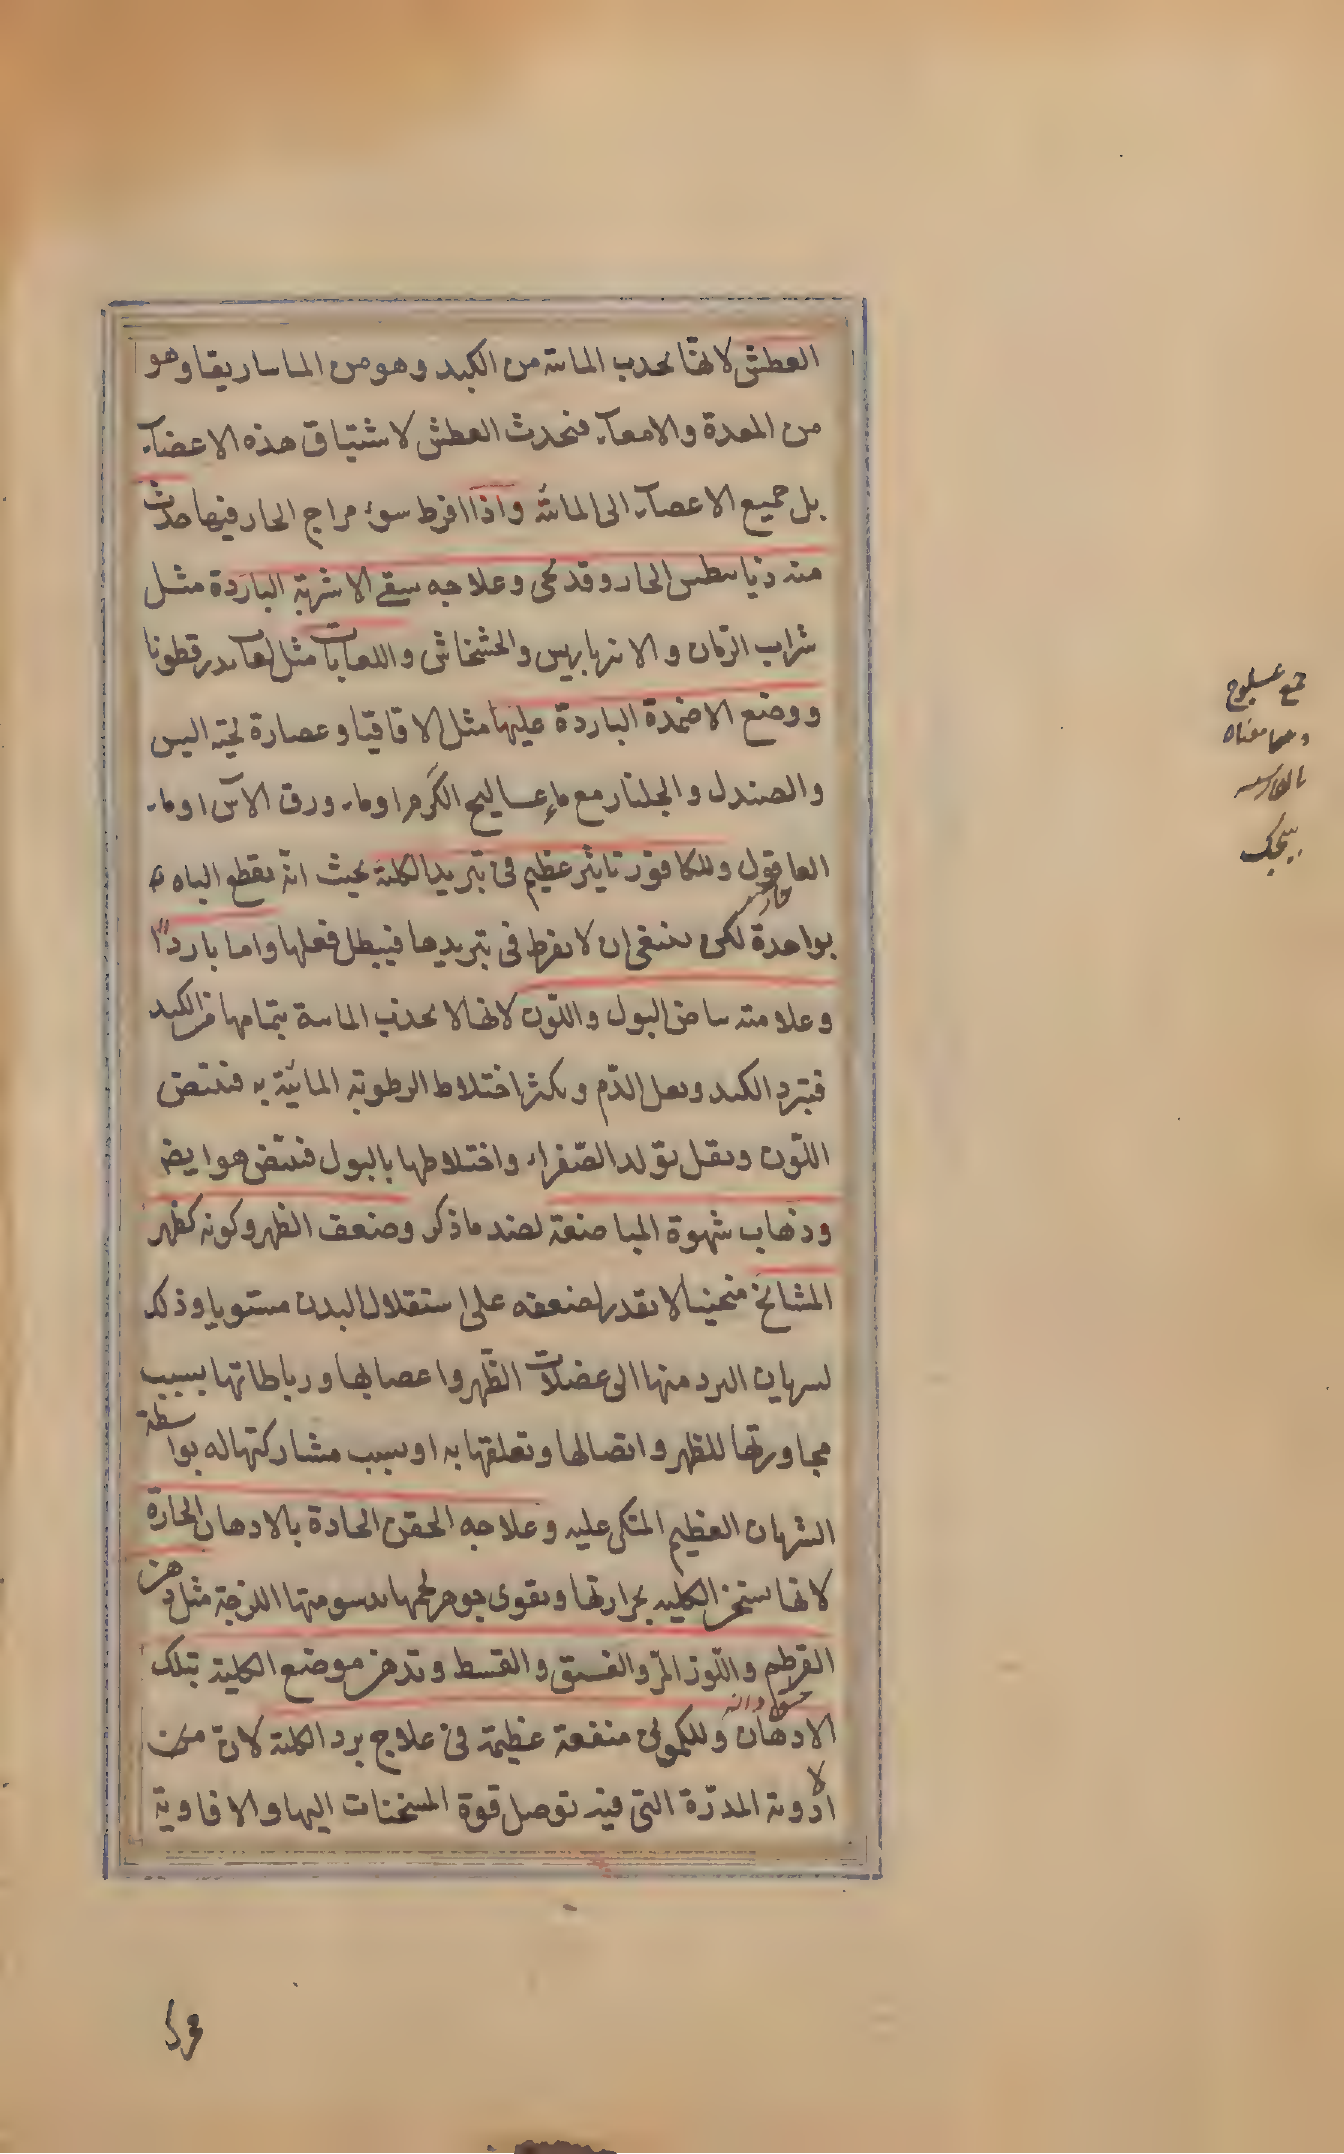 العطش لانها تجذب المائية من الكبد وهو من الماساريقا وهو
من المعدة والامعاء فيحدث العطش لاشتياق هذه الاعضاء
بل جميع الاعضاء الى المائية واذا افرط سوء مزاج الحار فيها حدث
منه ذيابيطس الحار وقد مضى وعلاجه سقى الاشربة الباردة مثل
شراب الرمان والانبرباريس والخشخاش واللعابات مثل لعاب بزرقطونا
ووضع الاضمدة الباردة عليها مثل الاقاقيا وعصارة لحية التيس
والصندل والجلنار مع ماء عساليج الكرم او ماء ورق الآس او ماء
العاقول وللكافور تاثير عظيم فى تبريد الكلية بحيث انه يقطع الباه
بواحدة لكن ينبغى ان لا يفرط فى تبريدها فيبطل فعلها واما باردا
وعلامته بياض البول واللون لانها لا تجذب المائية بتمامها من الكبد
فتبرد الكبد ويقل الدم ويكثر اختلاط الرطوبة المائية به فيبيض
اللون ويقل تولد الصفراء واختلاطها بالبول فيبيض هو ايضا
وذهاب شهوة المباضعة لضد ما ذكر وضعف الظهر وكونه كظهر
المشائخ منحنيا لا يقدر لضعفه على استقلال البدن مستويا وذلك
لسريان البرد منها الى عضلات الظهر واعصابها ورباطاتها بسبب
مجاورتها للظهر واتصالها وتعلقها به او بسبب مشاركتها له بواسطة
الشريان العظيم المتكى عليه وعلاجه الحقن الحادة بالادهان الحارة
لانها تسخن الكلية بحرارتها وتقوى جوهر لحمها بدسومتها اللزجة مثل دهن
القرطم واللوز المر والفستق والقسط وتدهن موضع الكلية بتلك
الادهان وللكمونى منفعة عظيمة فى علاج برد الكلية لان من
الادوية المدرة التى فيه توصل قوة المسخنات اليها والافاوية
جمع عسلوج
معناه
بالفارسية